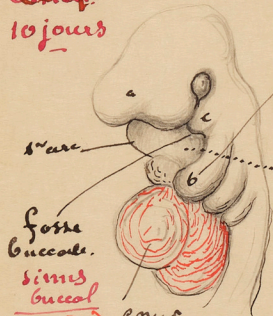 10 jours
a
c
1er arc
b
fosse
buccale.
sinus
buccal